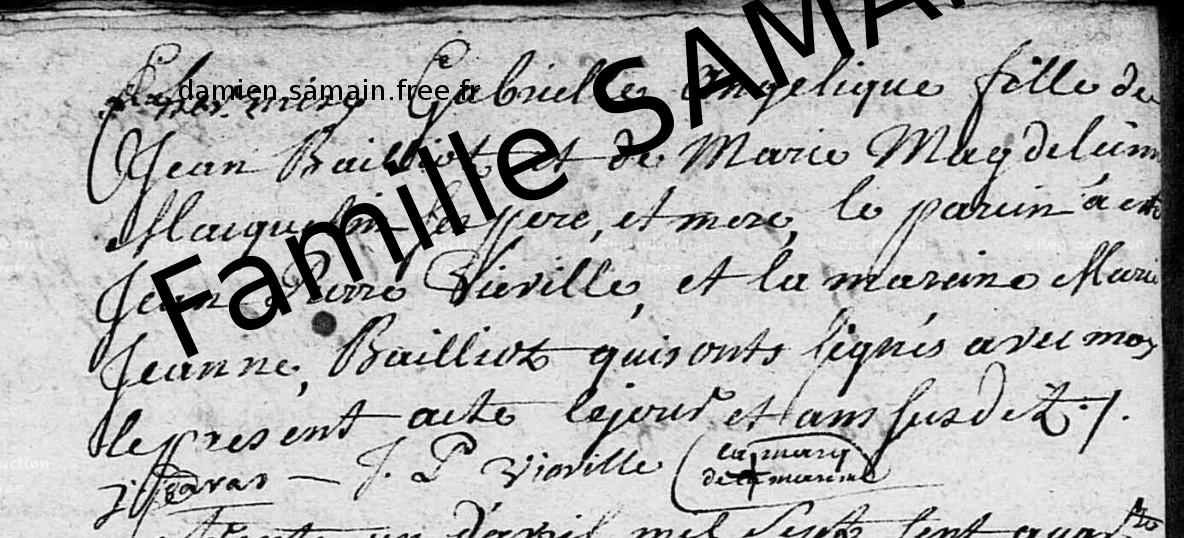 damien.samain.free.fr
Famille SAMAI
Gabrielle Angelique fille de
Jean Bailliot et de Marie Magdeleinne
pere, et mere, le parein a ette
Jean Pierre Vieville, et la mareine Marie
Jeanne, Bailliot qui sonts signés avec moy
le present acte le jour et ans susdit ./.
J. P Vieville
la marq
de la mareine
Trente un d'avril mil sept cent quar